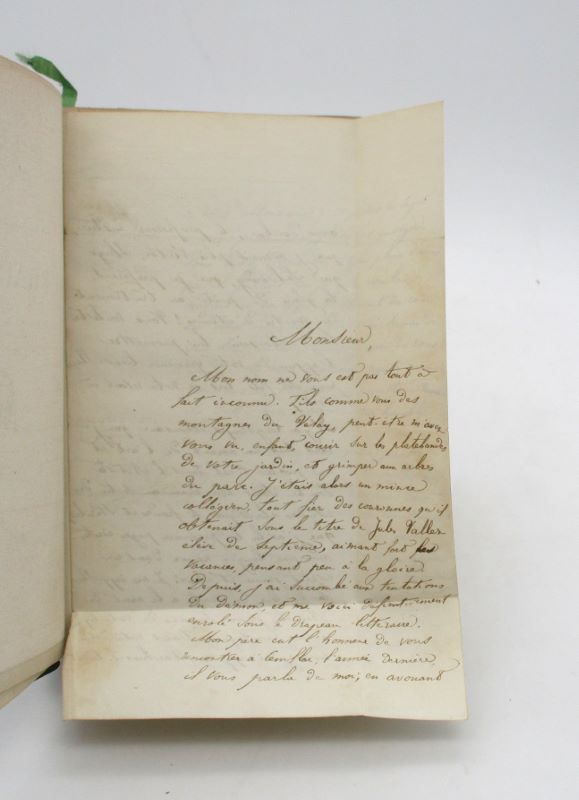 Monsieur,
Mon nom ne vous est pas tout à
fait inconnu. Fils comme vous des
montagnes du Vélay, peut-être m'avez
vous vu, enfant, courir sur les platebandes
de votre jardin, et grimper aux arbres
du parc. J'étais alors un mince
collégien, tout fier des couronnes qu'il
obtenait sous le titre de Jules Vallez
élève de septième, aimant fort les
vacances, pensant peu à la gloire
Depuis, j'ai succombé aux tentations
du démon, et me voici définitivement
enrolé sous le drapeau littéraire.
Mon père eut l'honneur de vous
rencontrer à l'année dernière
il vous parla de moi, en avouant